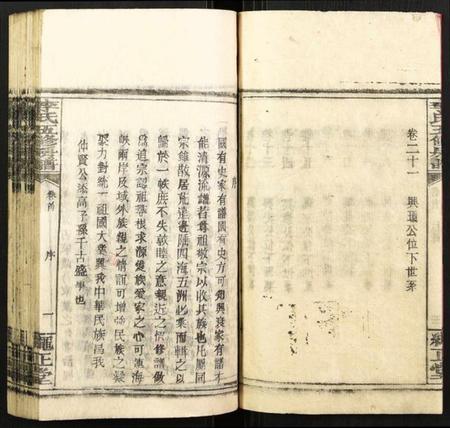 卷二十一 興 公位下世系
序
國有史家有譜國有史方可知興衰家有譜才
能清源流譜者尊祖敬宗以收其族也凡屬同
宗雖散居荒遠邊陲四海五洲必彙而輯之以
繫於一帙庶不失敦睦之意親近之情修譜做
為追宗認祖尋根求源愛族愛家之心可凍海
峽兩岸及域外族親之情誼可增強民族之凝
聚力對統一祖國大業興我中華民族為我
仲賢公添高子孫千古盛事也
李氏五修宗譜
卷首
序
一
隴正堂
李氏五修宗譜
隴正堂